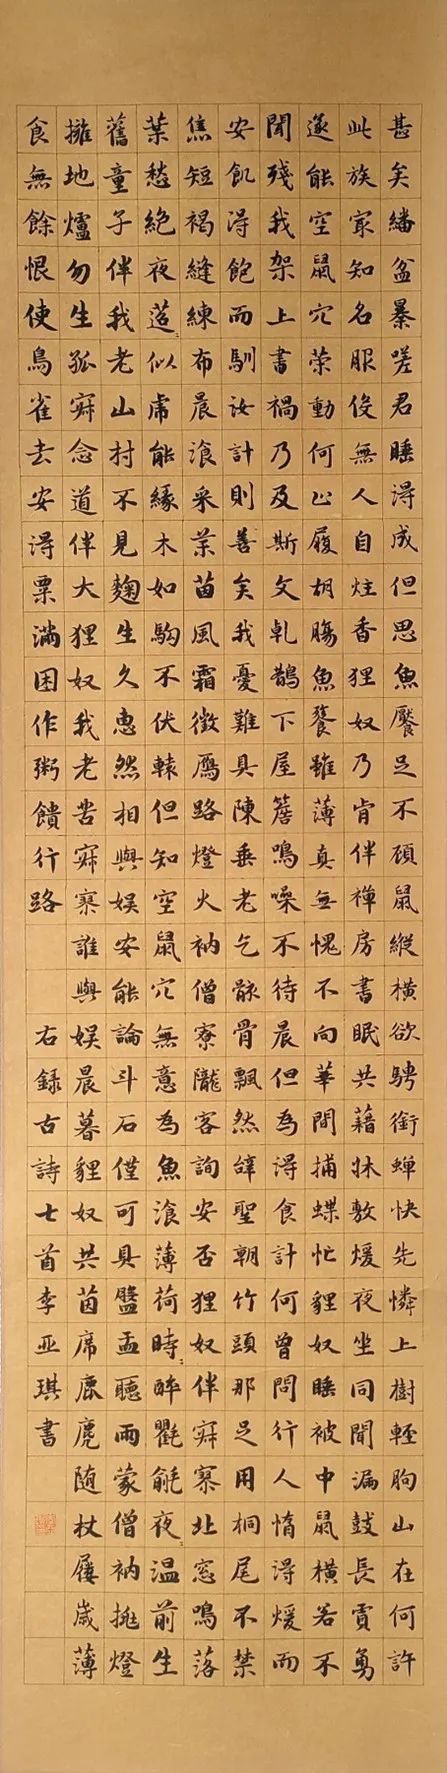 甚矣繙盆暴嗟君睡得成但思魚饜足不顧鼠縱橫欲騁銜蟬快先憐上樹輕朐山在何許
此族家知名服役無人自炷香狸奴乃肯伴禪房書眠共藉牀敷煖夜坐同聞漏鼓長賈勇
遂能空鼠穴策勳何止履胡腸魚飱雖薄真無愧不向華間捕蝶忙貍奴睡被中鼠橫若不
聞殘我架上書禍乃及斯文乾鵲下屋簷鳴噪不待晨但為得食計何曾問行人惰得煖而
安飢得飽而馴汝計則善矣我憂難具陳垂老乞骸骨飄然辭聖朝竹頭那足用桐尾不禁
焦短褐縫練布晨飡采葉苗風霜徵鴈路燈火衲僧寮隴客詢安否狸奴伴寂寞北窓鳴落
葉愁絕夜迢々似虎能緣木如駒不伏轅但知空鼠穴無意為魚飡薄荷時々醉氍毹夜々溫前生
舊童子伴我老山村不見麴生久惠然相與娛安能論斗石僅可具盤盂聽雨蒙僧衲挑燈
擁地爐勿生孤寂念道伴大狸奴我老苦寂寞誰與娛晨暮貍奴共茵席鹿麑隨杖屨歲薄
食無餘恨使鳥雀去安得粟滿囷作粥饋行路 右錄古詩七首李亞琪書